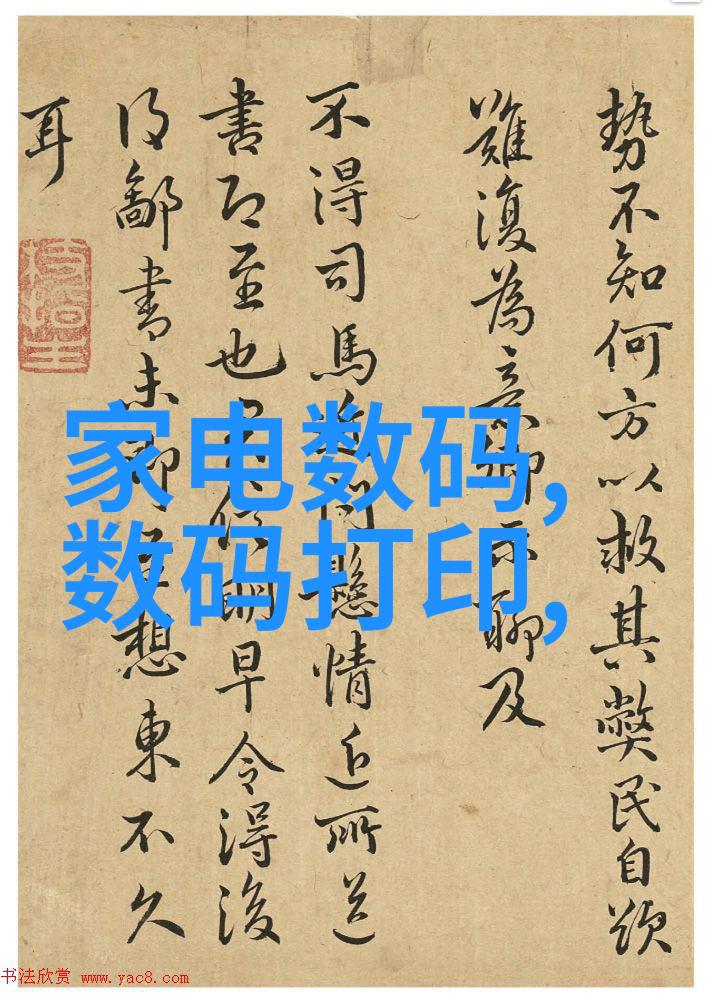 勢不知何方以救其弊民自
難復為意卿示聊及
不得司馬問懸情近所送
書即至也信明早令得後
得鄙書未卿想東不久
耳
家电数码,
数码打印,
书法欣赏 www.yac8.com